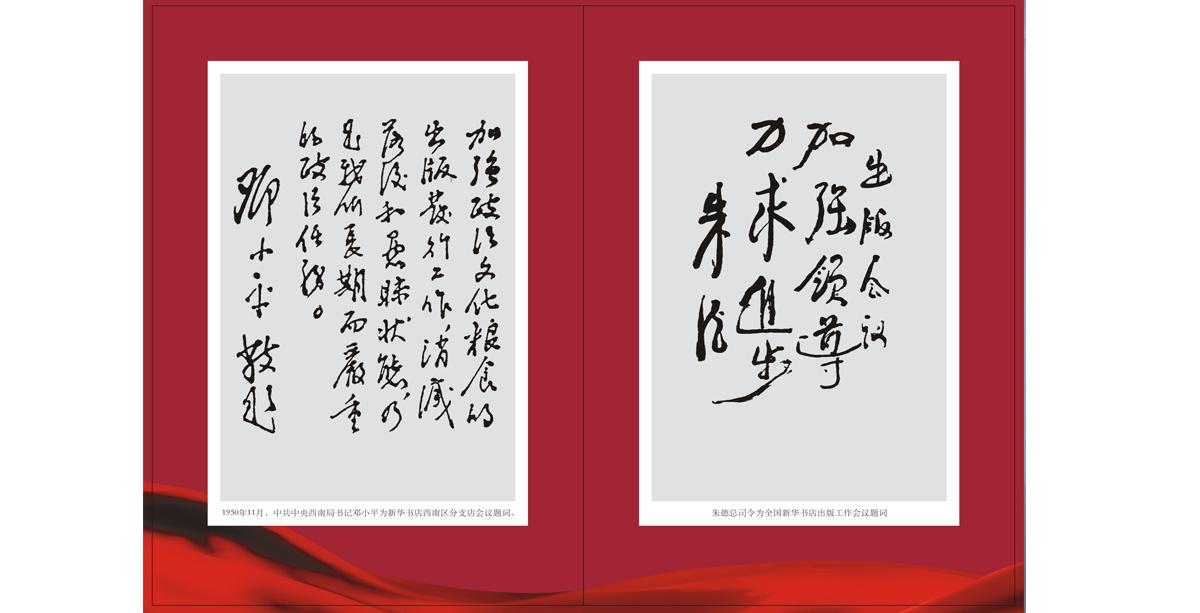 加强政治文化粮食的
出版发行工作，消滅
落後和愚昧状態，乃
是我們長期而嚴重
的政治任務。
鄧小平敬题
1950年11月，中共中央西南局书记邓小平为新华书店西南区分支店会议题词。
出版会议
加强領導
力求進步
朱德
朱德总司令为全国新华书店出版工作会议题词